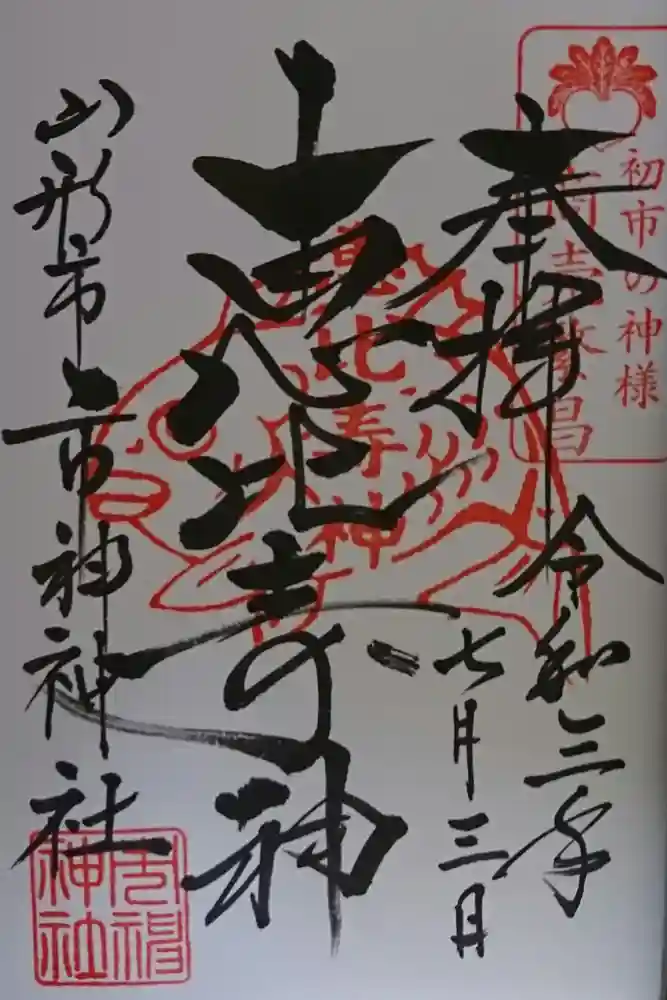 初市の神様
商売繁昌
奉拝
令和三年
七月三日
恵比寿神
恵比寿神
山形市
市神神社
神社